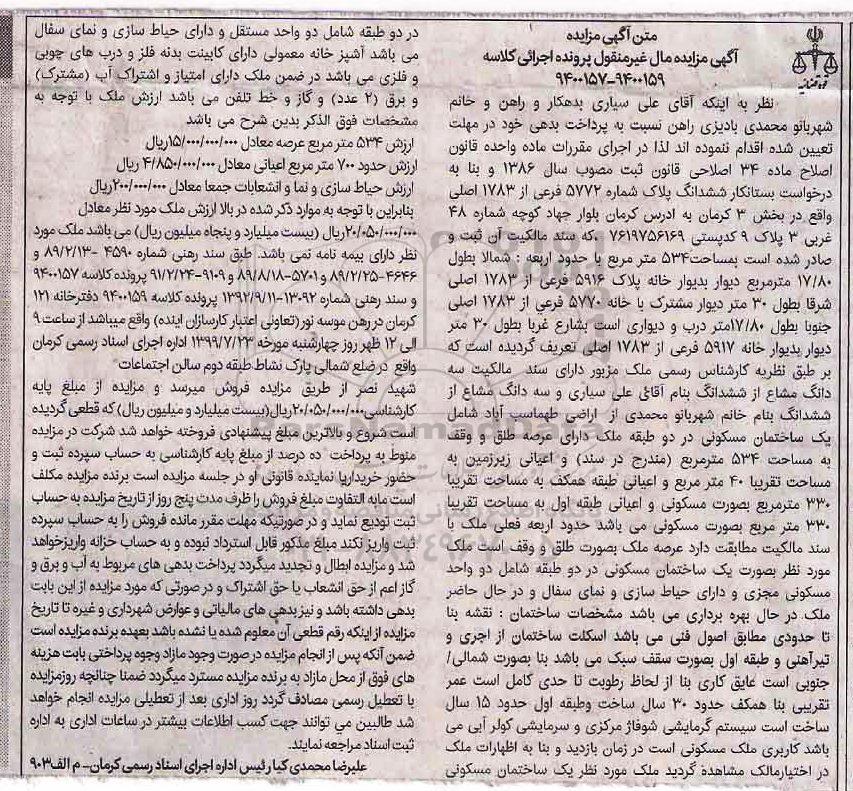 متن آگهی مزایده
آگهی مزایده مال غیرمنقول پرونده اجرائی کلاسه
۹۴۰۰۱۵۷-۹۴۰۰۱۵۹
نظر به اینکه آقای علی سیاری بدهکار و راهن و خانم
شهربانو محمدی بادیزی راهن نسبت به پرداخت بدهی خود در مهلت
تعیین شده اقدام ننموده اند لذا در اجرای مقررات ماده واحده قانون
اصلاح ماده ۳۴ اصلاحی قانون ثبت مصوب سال ۱۳۸۶ و بنا به
درخواست بستانکار ششدانگ پلاک شماره ۵۷۷۲ فرعی از ۱۷۸۳ اصلی
واقع در بخش ۳ کرمان به ادرس کرمان بلوار جهاد کوچه شماره ۴۸
غربی ۳ پلاک ۹ کدپستی ۷۶۱۹۷۵۶۱۶۹ که سند مالکیت آن ثبت و
صادر شده است بمساحت۵۳۴ متر مربع با حدود اربعه : شمالا بطول
۱۷/۸۰ مترمربع دیوار بدیوار خانه پلاک ۵۹۱۶ فرعی از ۱۷۸۳ اصلی
شرقا بطول ۳۰ متر دیوار مشترک با خانه ۵۷۷۰ فرعی از ۱۷۸۳ اصلی
جنوبا بطول ۱۷/۸۰متر درب و دیواری است بشارع غربا بطول ۳۰ متر
دیوار بدیوار خانه ۵۹۱۷ فرعی از ۱۷۸۳ اصلی تعریف گردیده است که
بر طبق نظریه کارشناس رسمی ملک مزبور دارای سند مالکیت سه
دانگ مشاع از ششدانگ بنام آقائی علی سیاری و سه دانگ مشاع از
ششدانگ بنام خانم شهربانو محمدی از اراضی طهماسب آباد شامل
یک ساختمان مسکونی در دو طبقه ملک دارای عرصه طلق و وقف
به مساحت ۵۳۴ مترمربع (مندرج در سند) و اعیانی زیرزمین به
مساحت تقریبا ۴۰ متر مربع و اعیانی طبقه همکف به مساحت تقریبا
۳۳۰ مترمربع بصورت مسکونی و اعیانی طبقه اول به مساحت تقریبا
۳۳۰ متر مربع بصورت مسکونی می باشد حدود اربعه فعلی ملک با
سند مالکیت مطابقت دارد عرصه ملک بصورت طلق و وقف است ملک
مورد نظر بصورت یک ساختمان مسکونی در دو طبقه شامل دو واحد
مسکونی مجزی و دارای حیاط سازی و نمای سفال و در حال حاضر
ملک در حال بهره برداری می باشد مشخصات ساختمان : نقشه بنا
تا حدودی مطابق اصول فنی می باشد اسکلت ساختمان از اجری و
تیرآهنی و طبقه اول بصورت سقف سبک می باشد بنا بصورت شمالی/
جنوبی است عایق کاری بنا از لحاظ رطوبت تا حدی کامل است عمر
تقریبی بنا همکف حدود ۳۰ سال ساخت وطبقه اول حدود ۱۵ سال
ساخت است سیستم گرمایشی شوفاژ مرکزی و سرمایشی کولر آبی می
باشد کاربری ملک مسکونی است در زمان بازدید و بنا به اظهارات ملک
در اختیارمالک مشاهده گردید ملک مورد نظر یک ساختمان مسکونی
در دو طبقه شامل دو واحد مستقل و دارای حیاط سازی و نمای سفال
می باشد آشپز خانه معمولی دارای کابینت بدنه فلز و درب های چوبی
و فلزی می باشد در ضمن ملک دارای امتیاز و اشتراک آب (مشترک)
و برق (۲ عدد) و گاز و خط تلفن می باشد ارزش ملک با توجه به
مشخصات فوق الذکر بدین شرح می باشد
ارزش ۵۳۴ متر مربع عرصه معادل ۱۵/۰۰۰/۰۰۰/۰۰۰ریال
ارزش حدود ۷۰۰ متر مربع اعیانی معادل ۴/۸۵۰/۰۰۰/۰۰۰ ریال
ارزش حیاط سازی و نما و انشعابات جمعا معادل ۲۰۰/۰۰۰/۰۰۰ریال
بنابراین با توجه به موارد ذکر شده در بالا ارزش ملک مورد نظر معادل
۲۰/۰۵۰/۰۰۰/۰۰۰ریال (بیست میلیارد و پنجاه میلیون ریال) می باشد ملک مورد
نظر دارای بیمه نامه نمی باشد. طبق سند رهنی شماره ۴۵۹۰ -۸۹/۲/۱۳ و
۴۶۴۶-۸۹/۲/۲۵ و ۵۷۰۱-۸۹/۸/۱۸ و ۹۱۰۹-۹۱/۲/۲۴ پرونده کلاسه ۹۴۰۰۱۵۷
و سند رهنی شماره ۱۳۰۹۲-۱۳۹۲/۹/۱۱ پرونده کلاسه ۹۴۰۰۱۵۹ دفترخانه ۱۲۱
کرمان در رهن موسه نور(تعاونی اعتبار کارسازان اینده) واقع میباشد از ساعت ۹
الی ۱۲ ظهر روز چهارشنبه مورخه ۱۳۹۹/۷/۲۳ اداره اجرای اسناد رسمی کرمان
واقع در ضلع شمالی پارک نشاط طبقه دوم سالن اجتماعات
شهید نصر از طریق مزایده فروش میرسد و مزایده از مبلغ پایه
کارشناسی۲۰/۰۵۰/۰۰۰/۰۰۰ریال(بیست میلیارد و میلیون ریال) که قطعی گردیده
است شروع و بالاترین مبلغ پیشنهادی فروخته خواهد شد شرکت در مزایده
منوط به پرداخت ده درصد از مبلغ پایه کارشناسی به حساب سپرده ثبت و
حضور خریداریا نماینده قانونی او در جلسه مزایده است برنده مزایده مکلف
است مابه التفاوت مبلغ فروش را ظرف مدت پنج روز از تاریخ مزایده به حساب
ثبت تودیع نماید و در صورتیکه مهلت مقرر مانده فروش را به حساب سپرده
ثبت واریز نکند مبلغ مذکور قابل استرداد نبوده و به حساب خزانه واریزخواهد
شد و مزایده ابطال و تجدید میگردد پرداخت بدهی های مربوط به آب و برق و
گاز اعم از حق انشعاب یا حق اشتراک و در صورتی که مورد مزایده از این بابت
بدهی داشته باشد و نیز بدهی های مالیاتی و عوارض شهرداری و غیره تا تاریخ
مزایده از اینکه رقم قطعی آن معلوم شده یا نشده باشد بعهده برنده مزایده است
ضمن آنکه پس از انجام مزایده در صورت وجود مازاد وجوه پرداختی بابت هزینه
های فوق از محل مازاد به برنده مزایده مسترد میگردد ضمنا چنانچه روزمزایده
با تعطیل رسمی مصادف گردد روز اداری بعد از تعطیلی مزایده انجام خواهد
شد طالبین می توانند جهت کسب اطلاعات بیشتر در ساعات اداری به اداره
ثبت اسناد مراجعه نمایند.
علیرضا محمدی کیا رئیس اداره اجرای اسناد رسمی کرمان- م الف۹۰۳